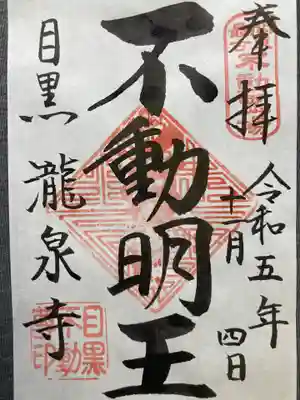 奉拝
令和五年
十一月
四日
不動明王
目黒
瀧泉寺
目黒
不動